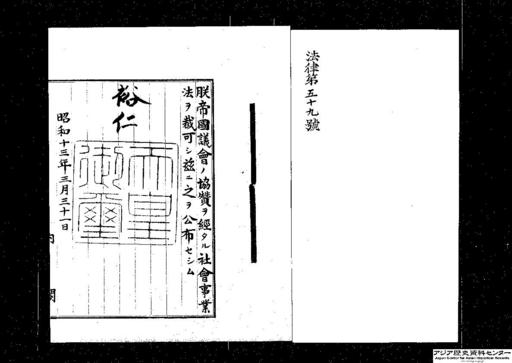 法律第五十九號
朕帝國議會ノ協贊ヲ經タル社會事業
法ヲ裁可シ茲ニ之ヲ公布セシム
裕仁
天皇
御璽
昭和十三年三月三十一日
内閣
アジア歴史資料センター
Japan Center for Asian Historical Records